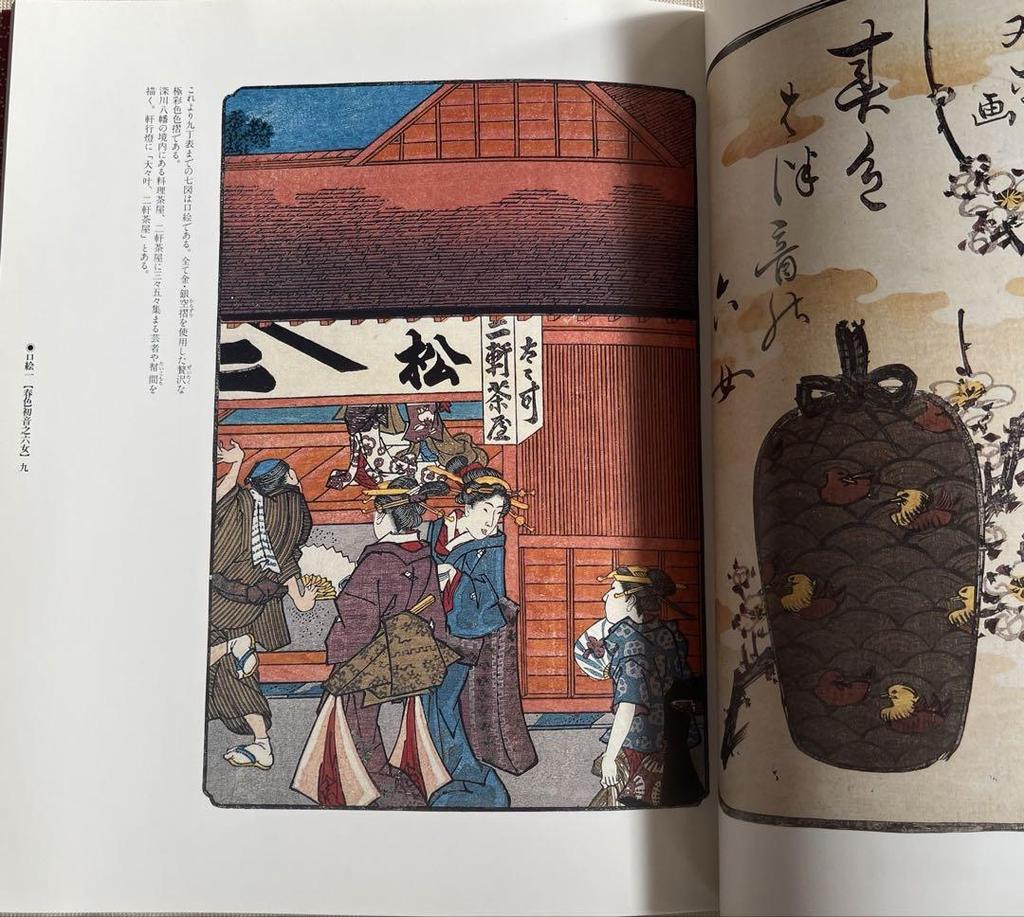 春色
六女
画
大々叶
二軒茶屋
松
二
これより九丁表までの七図は口絵である。全て金・銀空摺を使用した贅沢な
極彩色色摺である。
深川八幡の境内にある料理茶屋、二軒茶屋に三々五々集まる芸者や幇間を
描く。軒行燈に「大々叶、二軒茶屋」とある。
●口絵一【春色初音之六女】九